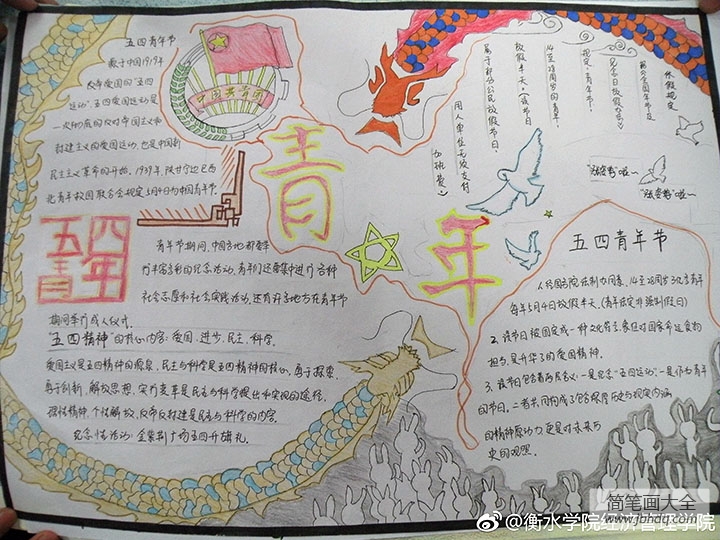 五四青年节
源于中国1919年
反帝爱国的"五四
运动"，五四爱国运动是
一次彻底的反对帝国主义和
封建主义的爱国运动，也是中国新
民主主义革命的开始。1939年，陕甘宁边区西
北青年救国联合会规定5月4日为中国青年节
中国共青团
青年
五四
青年
青年节期间，中国各地都要举
行丰富多彩的纪念活动，青年们还要集中进行各种
社会志愿和社会实践活动，还有许多地方在青年节
期间举行成人仪式。
"五四精神"的核心内容：爱国、进步、民主、科学。
爱国主义是五四精神的源泉，民主与科学是五四精神的核心，勇于探索、
勇于创新、解放思想、实行变革是民主与科学提出和实现的途径，
理性精神、个性解放、反帝反封建是民主与科学的内容。
纪念性活动：金紫荆广场五四升旗礼。
休假规定
节日及
纪念日放假办法》
规定，青年节，
14至28周岁的青年，
放假半天。(该节日
属于部分公民放假节日，
用人单位无须支付
加班费。)
五四青年节
人经国务院法制办同意，14至28周岁的青年
每年5月4日放假半天。(青年法定非强制假日)
2、该节日被固定成一种文化符号，象征对国家命运的
担当，是升华了的爱国精神。
3、该节日包含着两层含义：一是纪念"五四运动"，一是作为青年
的节日。二者共同构成了包含厚重历史与现实内涵
的精神原动力，更是对未来与
史的观照。
简笔画大全
www.jbhdq.com
@衡水学院经济管理学院